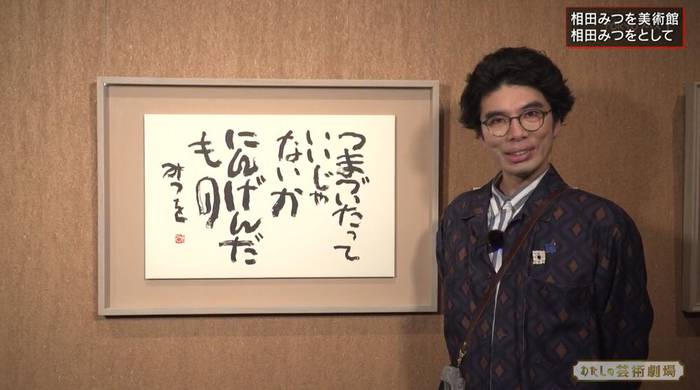 相田みつを美術館
相田みつをとして
つまづいたって
いいじゃ
ないか
にんげんだ
も の
みつを
わたしの芸術劇場